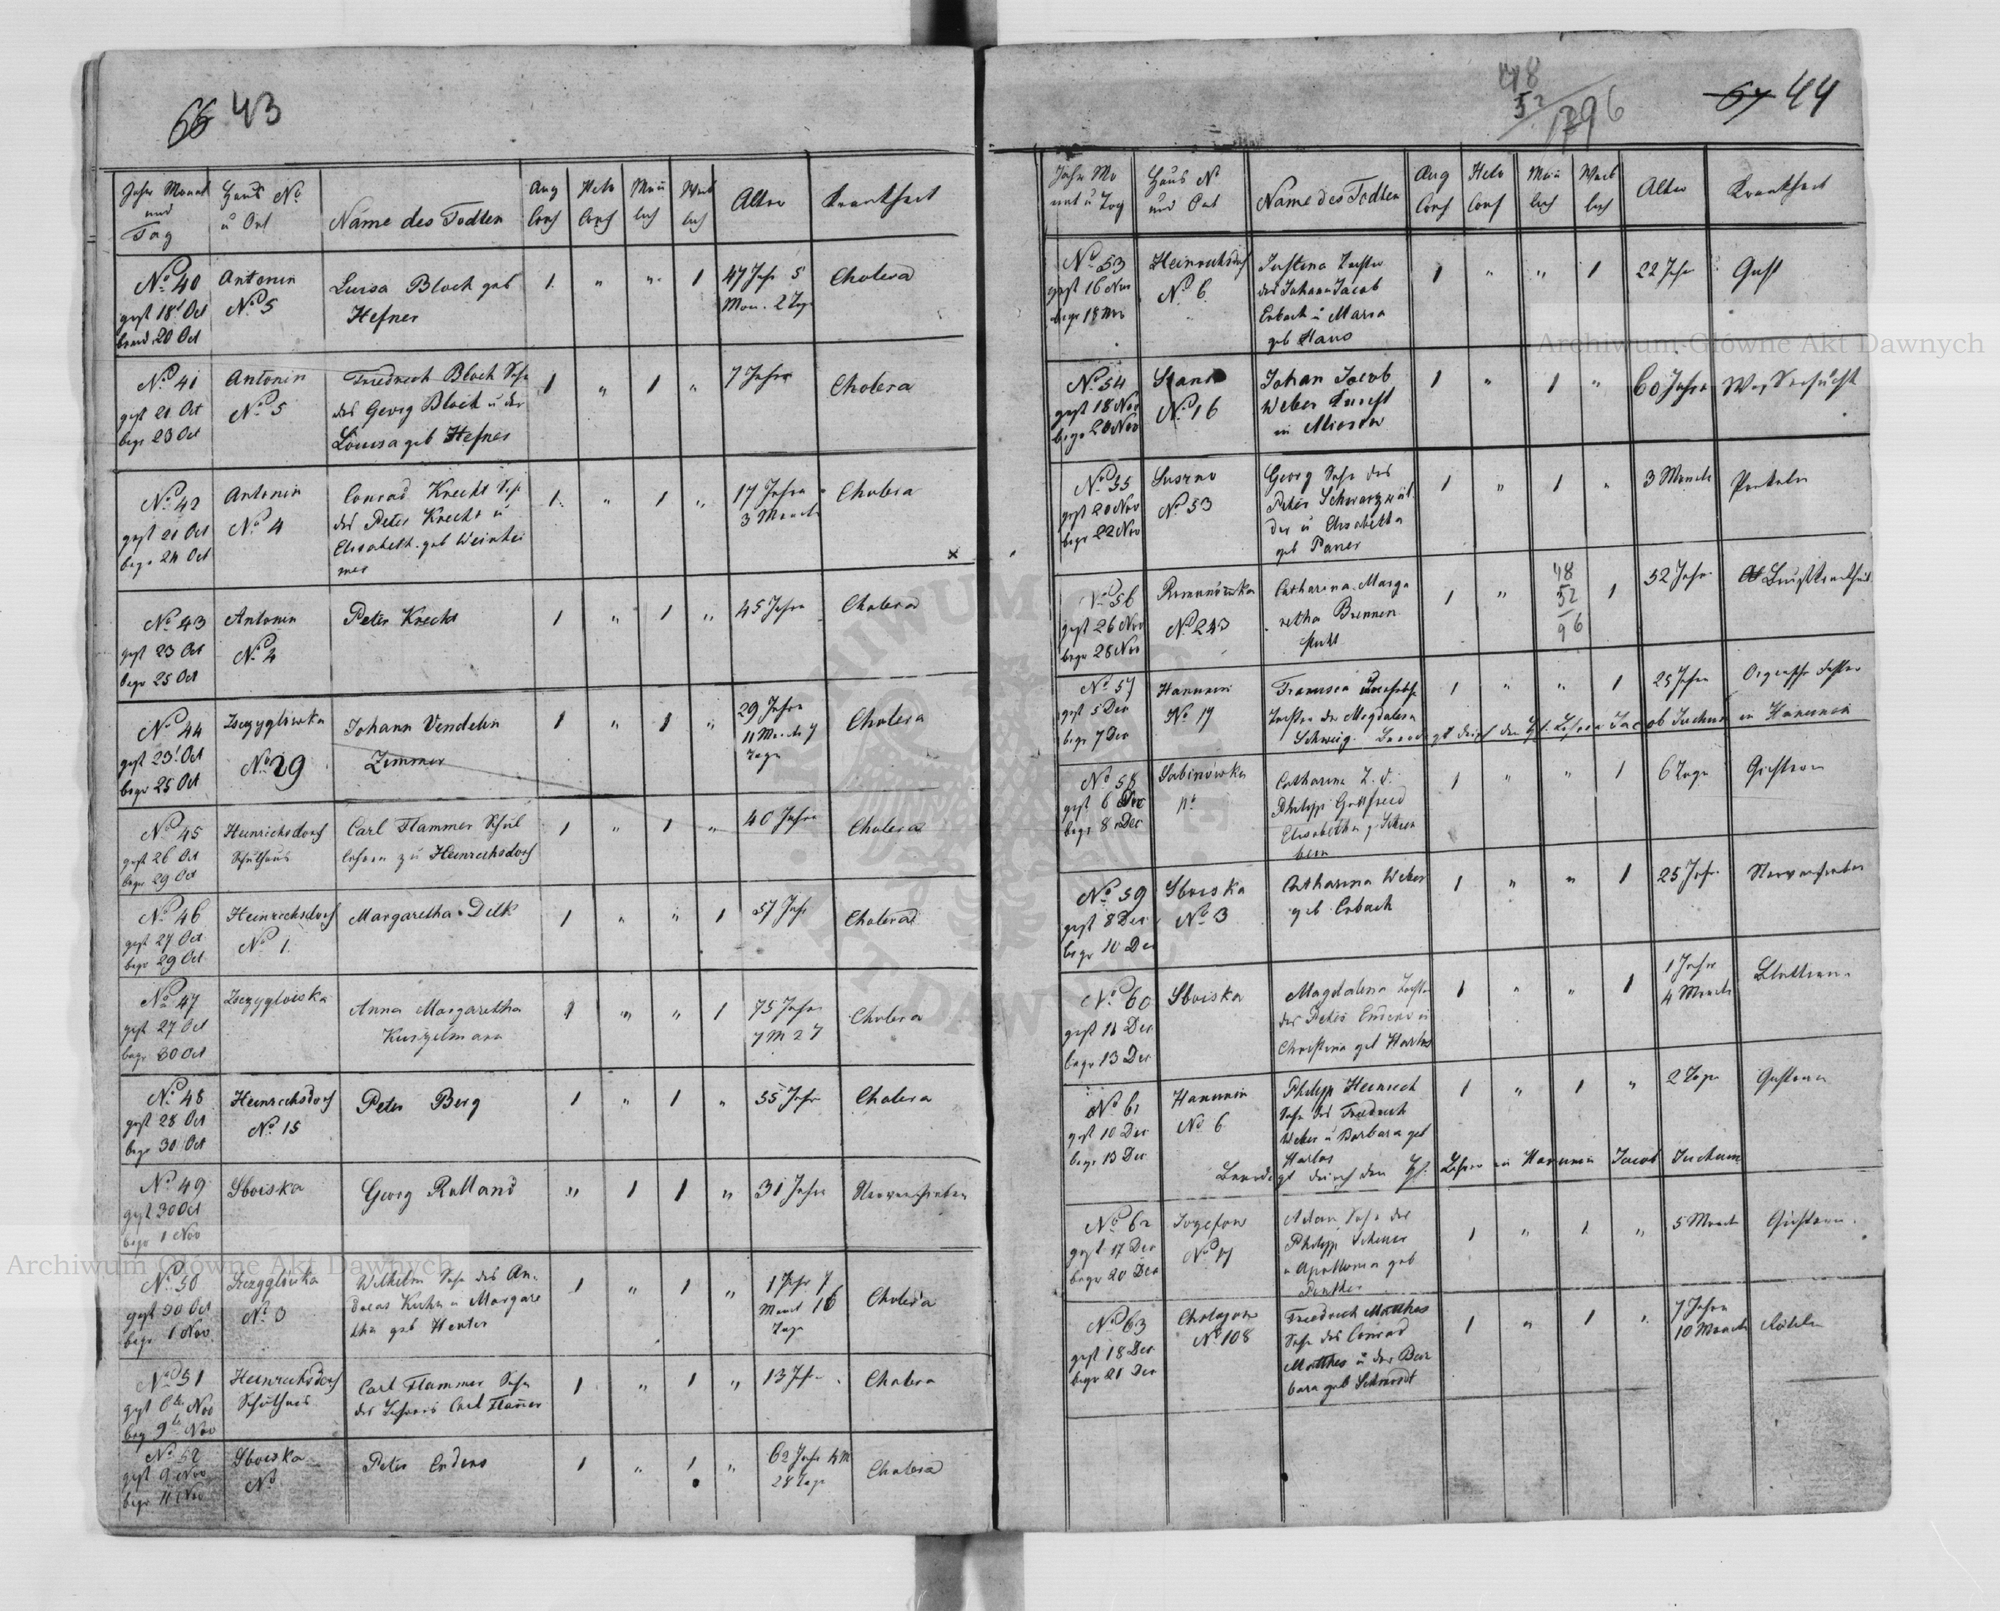 66 43
Jahr Monat und Tag
Haus No u Ort
Name des Todten
Aug Conf
Helv Conf
Män lich
Weib lich
Alter
Krankheit
No 40 Antonin Luisa Bloch geb 1 " " 1 47 Jahr 5 Cholera
gest 18 Oct No 5 Hefner Mon. 2 Tage
beerd 20 Oct
No 41 Antonin Friedrich Bloch Sohn 1 " 1 " 7 Jahre Cholera
gest 21 Oct No 5 des Georg Bloch u der
begr 23 Oct Louisa geb Hefner
No 42 Antonin Conrad Knecht Sohn 1 " 1 " 17 Jahre Cholera
gest 21 Oct No 4 des Peter Knecht u 3 Monate
begr 24 Oct Elisabeth geb Weinhei
mer
No 43 Antonin Peter Knecht 1 " 1 " 45 Jahre Cholera
gest 23 Oct No 4
begr 25 Oct
No 44 Johann Vendelin 1 " 1 " 29 Jahre Cholera
gest 23 Oct No 29 Zimmer 11 Monate 7
begr 25 Oct Tage
No 45 Heinrichsdorf Carl Flammer Schul 1 " 1 " 40 Jahre Cholera
gest 26 Oct Schulhaus lehrer zu Heinrichsdorf
begr 29 Oct
No 46 Heinrichsdorf Margaretha Delk 1 " " 1 57 Jahr Cholera
gest 27 Oct No 1
begr 29 Oct
No 47 Anna Margaretha 1 " " 1 75 Jahre Cholera
gest 27 Oct 7 M 27
begr 30 Oct
No 48 Heinrichsdorf Peter Berg 1 " 1 " 55 Jahr Cholera
gest 28 Oct No 15
begr 30 Oct
No 49 Sboiska Georg Rulland " 1 1 " 31 Jahre Nervenfieber
gest 30 Oct
begr 1 Nov
No 50 Wilhelm Sohn des An 1 " 1 " 1 Jahr 7 Cholera
gest 30 Oct No 3 dreas Kuhn u Margare Monat 16
begr 1 Nov tha geb Henter Tage
No 51 Heinrichsdorf Carl Flammer Sohn 1 " 1 " 13 Jahr Cholera
gest 6te Nov Schulhaus des Lehrers Carl Flamer
beg 9te Nov
No 52 Sboiska Peter Enders 1 " 1 " 62 Jahr 4 M Cholera
gest 9 Nov No 28 Tage
begr 11 Nov
48
52
/ 796
67 44
Jahr Mo nat u Tag
Haus No und Ort
Name des Todten
Aug Conf
Helv Conf
Män lich
Weib lich
Alter
Krankheit
No 53 Heinrichsdorf Justina Tochter 1 " " 1 22 Jahr
gest 16 Nov No 6 des Johann Jacob
begr 18 Nov Erbach u Maria
geb Haus
No 54 Johan Jacob 1 " 1 " 60 Jahre Wassersucht
gest 18 Nov No 16 Weber
begr 20 Nov
No 55 Suszno Georg Sohn des 1 " 1 " 3 Monate
gest 20 Nov No 53 Peter Schwarzwäl
begr 22 Nov der u Elisabetha
geb Paner
No 56 Romanówka Catharina Marga 1 " 48 52 96 1 52 Jahr Brustkrankheit
gest 26 Nov No 243 retha Brennen
begr 28 Nov stuhl
No 57 Hanunin 1 " " 1 25 Jahre
gest 5 Dec No 17 Tochter der Magdalena
begr 7 Dec Schweig. Beerdigt durch den H. Lehrer Jacob Juchum in Hanunin
No 58 Sabinówka Catharina T. d. 1 " " 1 6 Tage
gest 6 Dec Philipp Gottfried
begr 8 Dec Elisabetha g.
No 59 Sboiska Catharina Weber 1 " " 1 25 Jahr Nervenfieber
gest 8 Dec No 3 geb Erbach
begr 10 Dec
No 60 Sboiska Magdalena Tochter 1 " " 1 1 Jahr Blattern
gest 11 Dec des Peter Enders u 4 Monate
begr 13 Dec Christina geb Harlos
No 61 Hanunin Philipp Heinrich 1 " 1 " 2 Tage
gest 10 Dec No 6 Sohn des Friedrich
begr 13 Dec Weber u Barbara geb
Harlos
Beerdigt durch den H. Lehrer in Hanunin Jacob Juchum
No 62 Jozefow Adam Sohn des 1 " 1 " 5 Monate
gest 17 Dec No 17 Philipp Scheuer
begr 20 Dec u Apollonia geb
No 63 Chologow Friedrich Matthes 1 " 1 " 7 Jahre
gest 18 Dec No 108 Sohn des Conrad 10 Monate
begr 21 Dec Matthes u der Bar
bara geb Schmidt
Archiwum Główne Akt Dawnych
Archiwum Główne Akt Dawnych